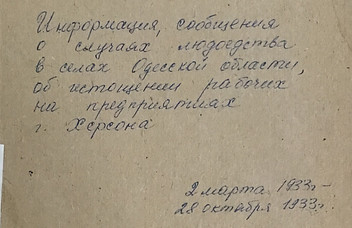 Информация, сообщения
о случаях людоедства
в селах Одесской области,
об истощении рабочих
на предприятиях
г. Херсона
2 марта 1933 г-
28 октября 1933 г.